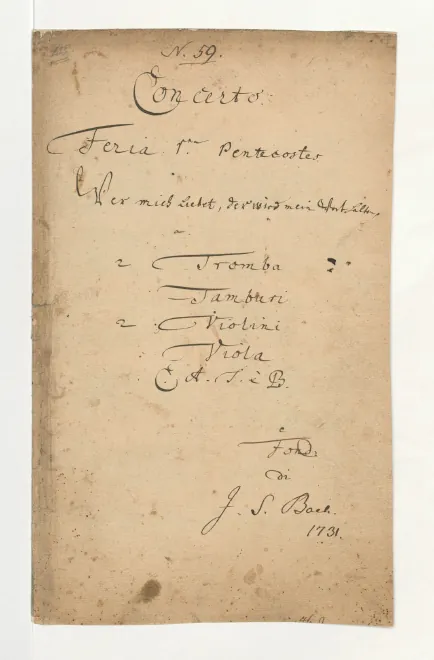 N. 59.
Concerto.
Feria 1.ma Pentecostes
Wer mich liebet, der wird mein Wort halten,
a.
2 Tromba
Tamburi
2 Violini
Viola
C. A. T. è B.
e
Fond.
di
J. S. Bach.
1731.